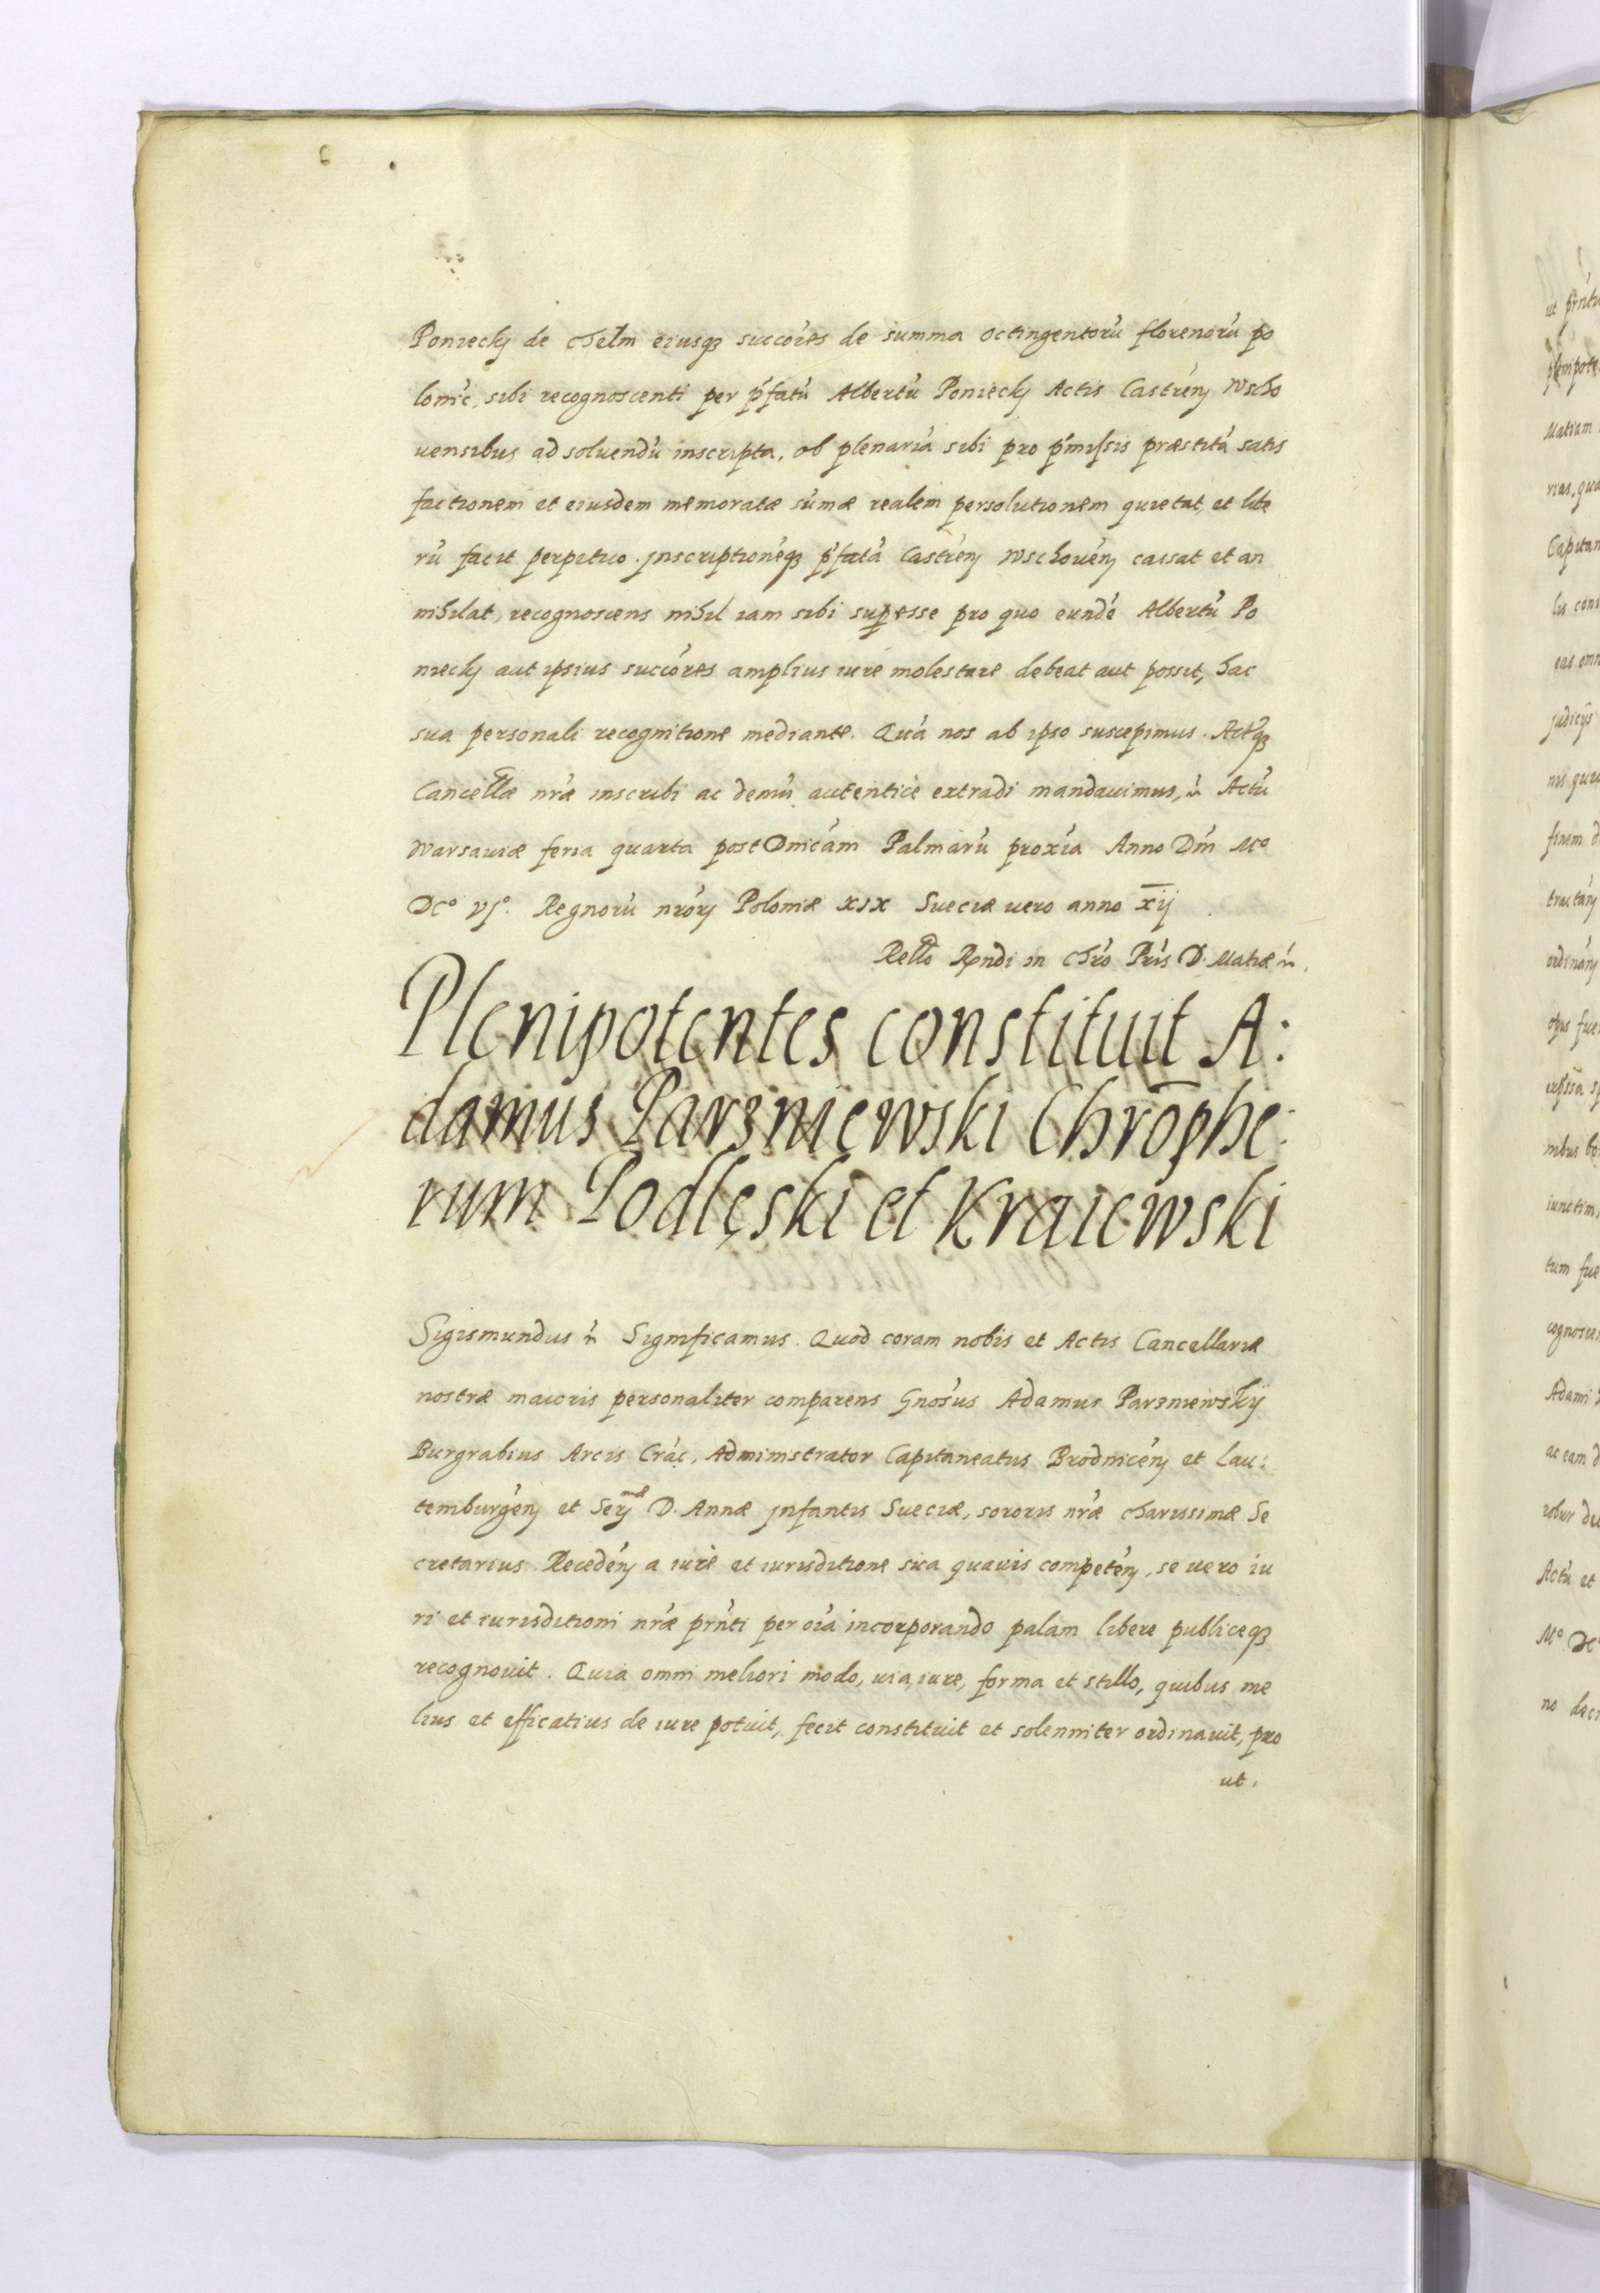 6
Poniecky de Chelm eiusq₃ succór̃es de summa octingentorũ florenorũ po
lonic̃, sibi recognoscenti per p̃fatũ Albertũ Poniecky Actis Castren̄ Wscho
uensibus ad soluendũ inscripta, ob plenariã sibi pro p̃missis præstitã satis
factionem et eiusdem memoratæ sũmæ realem persolutionem quietat, et libe
rũ facit perpetuo. Inscriptionéq₃ p̃fatã Castren̄ Wschouén̄ cassat et an
nihilat, recognoscens nihil iam sibi suꝑesse pro quo eundẽ Albertũ Po
niecky aut ipsius succór̃es amplius iure molestare debeat aut possit, hac
sua personali recognitione mediante. Quã nos ab ipso suscepimus. Actq₃
Cancellæ nr̃æ inscribi ac demũ autenticè extradi mandauimus, Actũ
Warsauiæ feria quarta post Dnicám Palmarũ proxĩa Anno Dñi Mº
DCº VIº. Regnorũ nror̃ Poloniæ XIX Sueciæ uero anno xij
Rello Rpndi in Chro Pris D. Matiæ
Plenipotentes constituit A:
damus Parzniewski Chrõphe:
rum Podlęski et Kraiewski
Sigismundus Significamus. Quod coram nobis et Actis Cancellariæ
nostræ maioris personaliter comparens Gnosus Adamus Parzniewskÿ
Burgrabius Arcis Crac̃, Administrator Capitaneatus Brodnicén̄ et Lau:
temburgén̄ et Ser̃mæ D. Annæ Infantis Sueciæ, sororis nr̃æ charissimæ Se
cretarius. Recedén̄ a iurè et iurisditione sua quauis competén̄, se uero iu
ri et iurisditioni nr̃æ prñti per oĩa incorporando palam libere publiceq₃
recognouit. Quia omni meliori modo, uia, iure, forma et stillo, quibus me
lius et efficatius de iure potuit, fecit constituit et solenniter ordinauit, pro
ut.